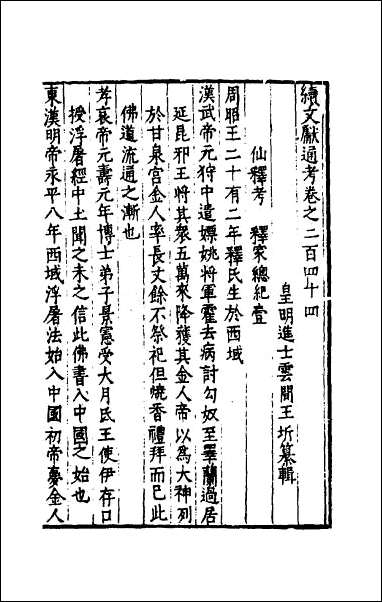 續文獻通考卷之二百四十四
皇明進士雲間王圻纂輯
仙釋考　釋家總紀壹
周昭王二十有二年釋氏生於西域
漢武帝元狩中遣嫖姚將軍霍去病討匈奴至皐蘭過居
延昆邪王將其衆五萬來降獲其金人帝以為大神列
於甘泉宮金人率長丈餘不祭祀但燒香禮拜而已此
佛道流通之漸也
孝哀帝元壽元年博士弟子景憲受大月氏王使伊存口
授浮屠經中土聞之未之信此佛書入中國之始也
東漢明帝永平八年西域浮屠法始入中國初帝夢金人